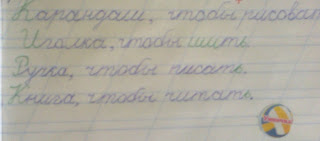 Карандаш, чтобы рисоват
Иголка, чтобы шить.
Ручка, чтобы писать.
Книга, чтобы читать.